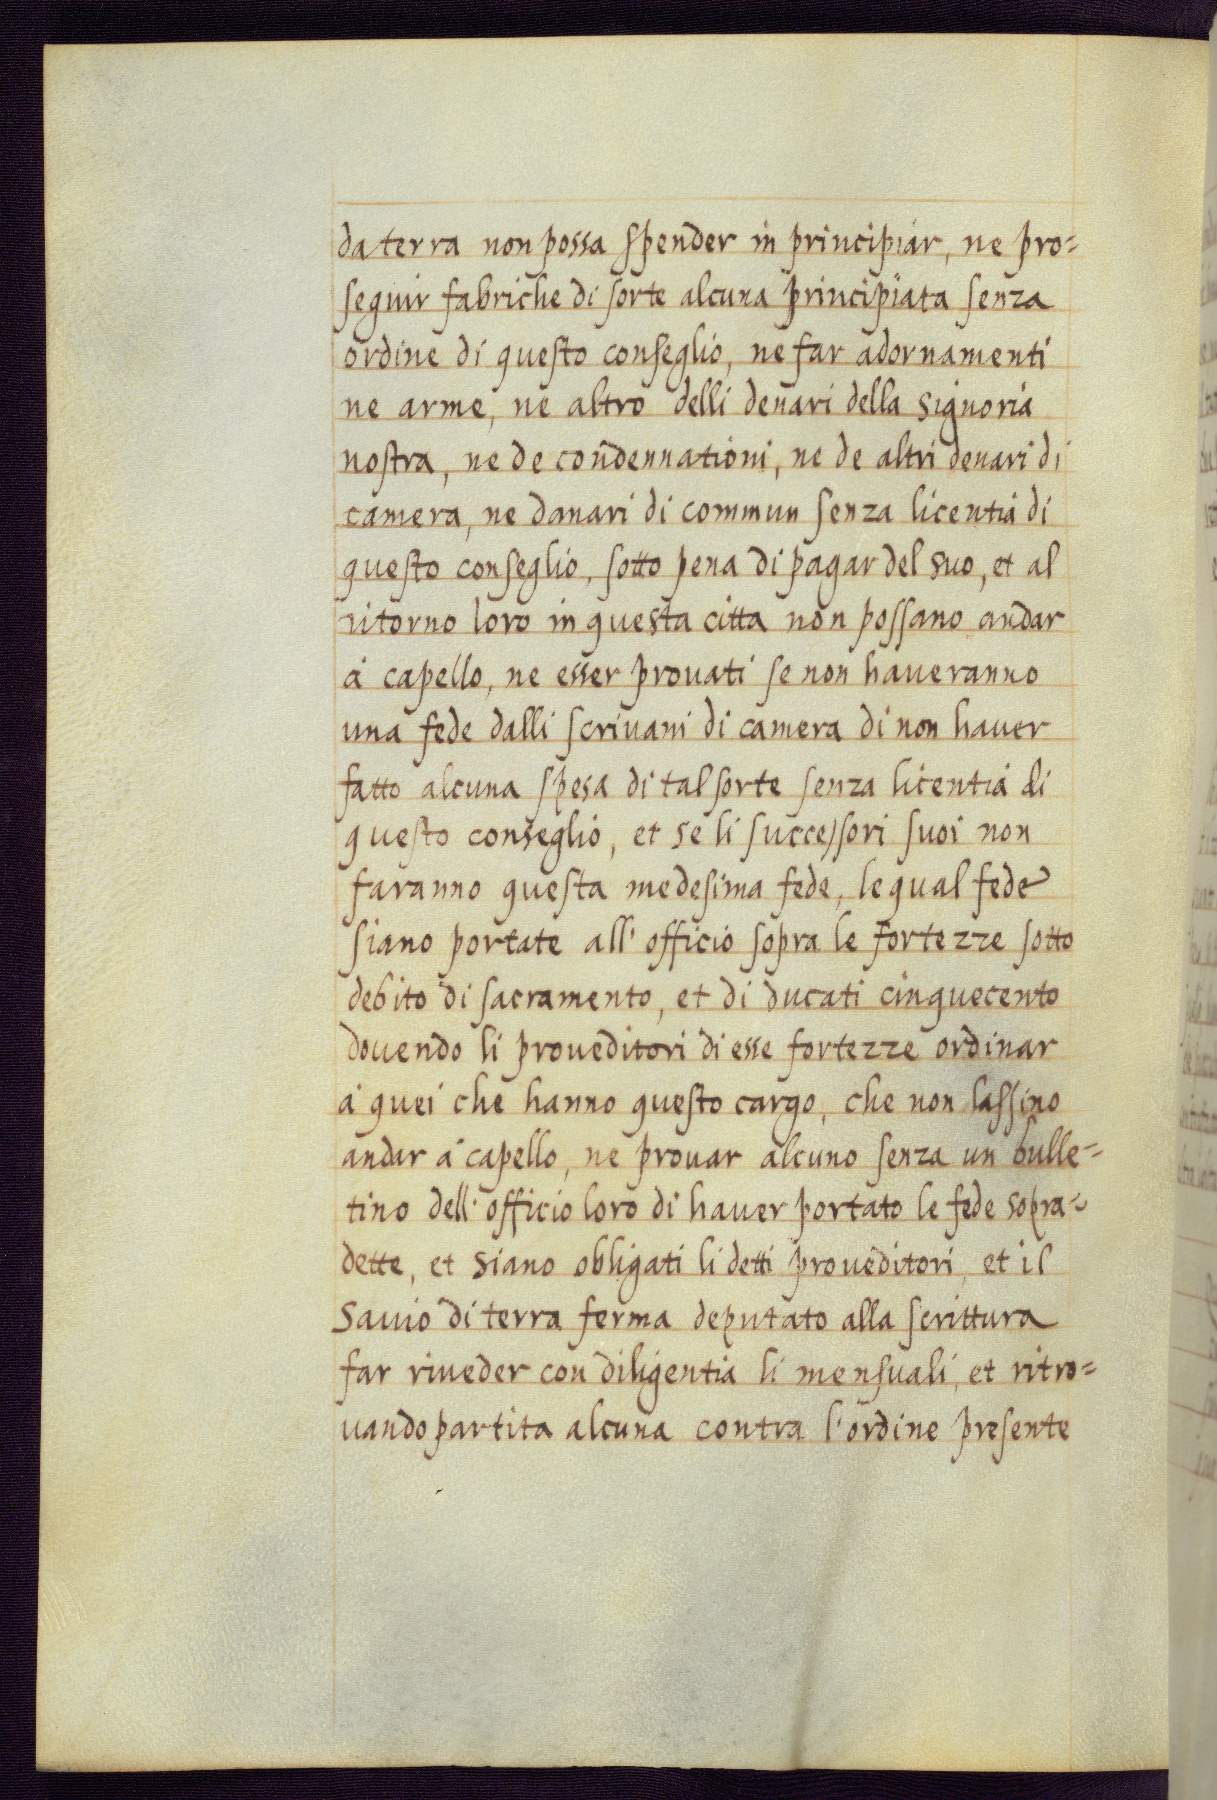 da terra non possa spender in principiar, ne pro=
seguir fabriche di sorte alcuna principiata senza
ordine di questo conseglio, ne far adornamenti
ne arme, ne altro delli denari della Signoria
nostra, ne de condennationi, ne de altri denari di
camera, ne danari di commun senza licentia di
questo conseglio, sotto pena di pagar del suo, et al
ritorno loro in questa citta non possano andar
à capello, ne esser provati se non haveranno
una fede dalli scrivani di camera di non haver
fatto alcuna spesa di tal sorte senza licentia di
questo conseglio, et se li successori suoi non
faranno questa medesima fede, le qual fede
siano portate all' officio sopra le Fortezze sotto
debito di sacramento, et di ducati cinquecento
dovendo li proveditori di esse fortezze ordinar
à quei che hanno questo cargo, che non lassino
andar à capello, ne provar alcuno senza un bulle=
tino dell' officio loro di haver portato le fede sopra=
dette, et siano obligati li detti proveditori, et il
Savio di terra ferma deputato alla scrittura
far riveder con diligentia li mensuali, et ritro=
vando partita alcuna contra l'ordine presente